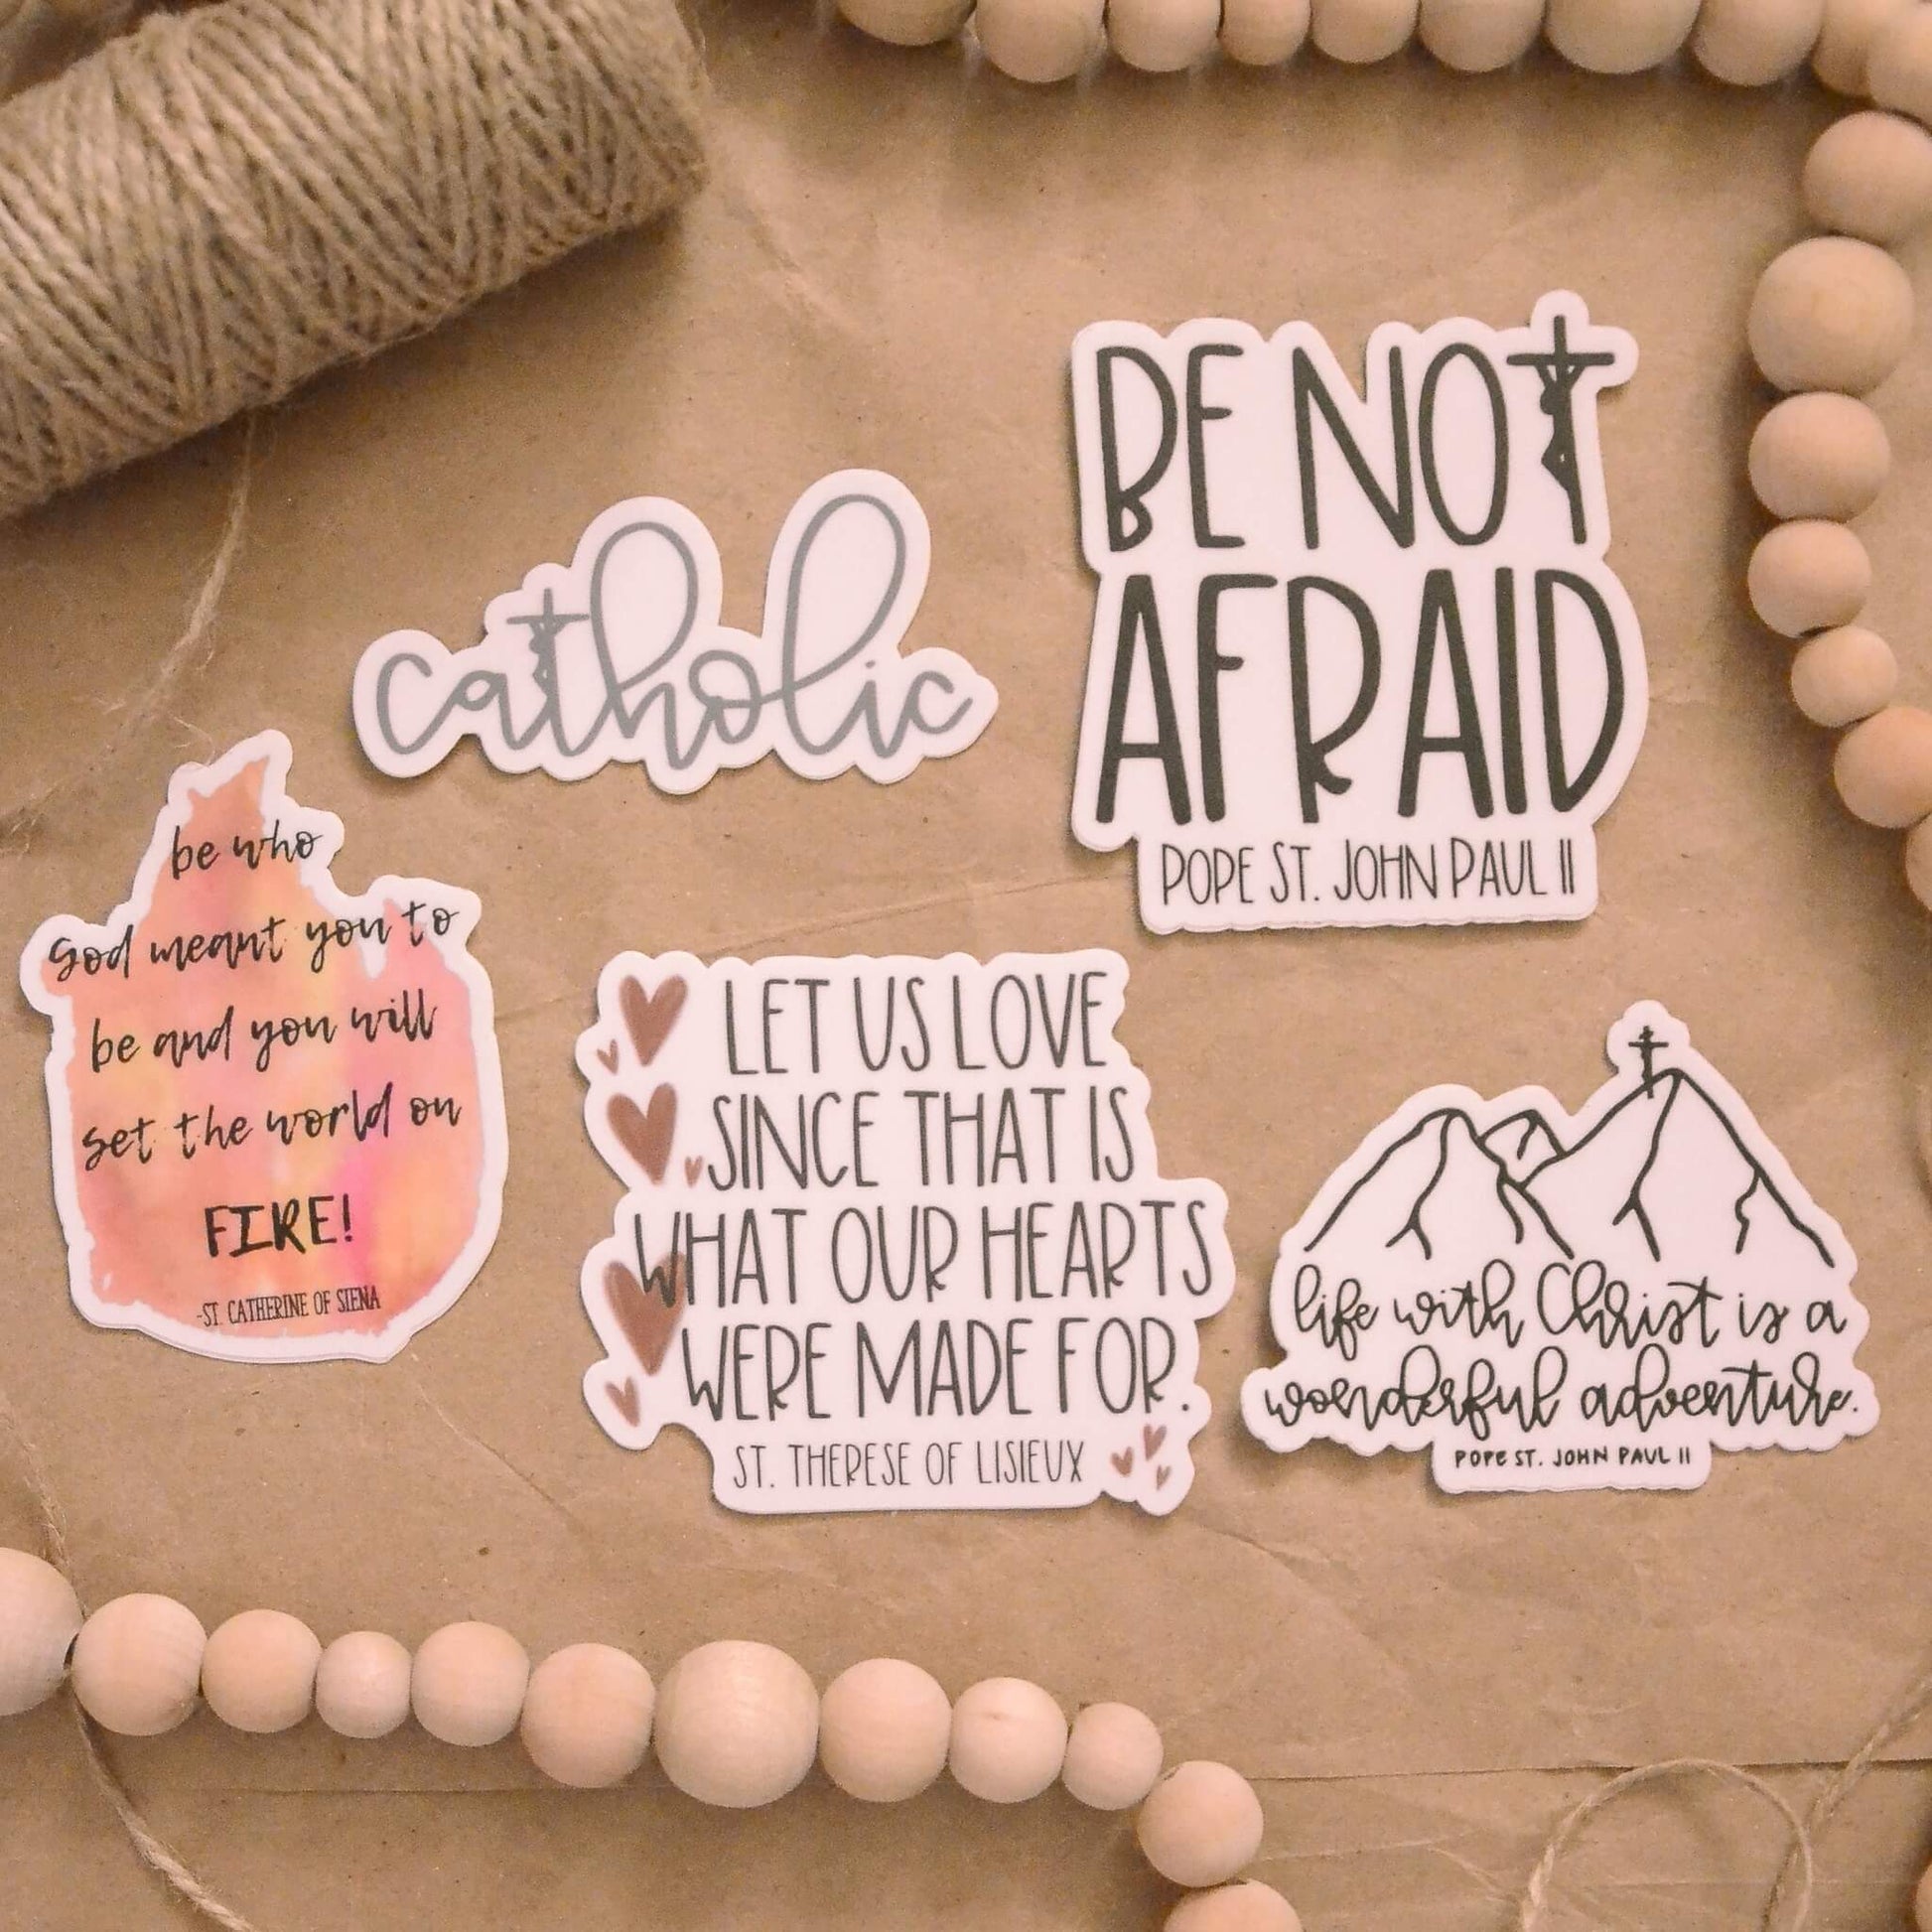 catholic
BE NOT
AFRAID
POPE ST. JOHN PAUL II
be who
God meant you to
be and you will
set the world on
FIRE!
-ST. CATHERINE OF SIENA
LET US LOVE
SINCE THAT IS
WHAT OUR HEARTS
WERE MADE FOR.
ST. THERESE OF LISIEUX
life with Christ is a
wonderful adventure.
POPE ST. JOHN PAUL II